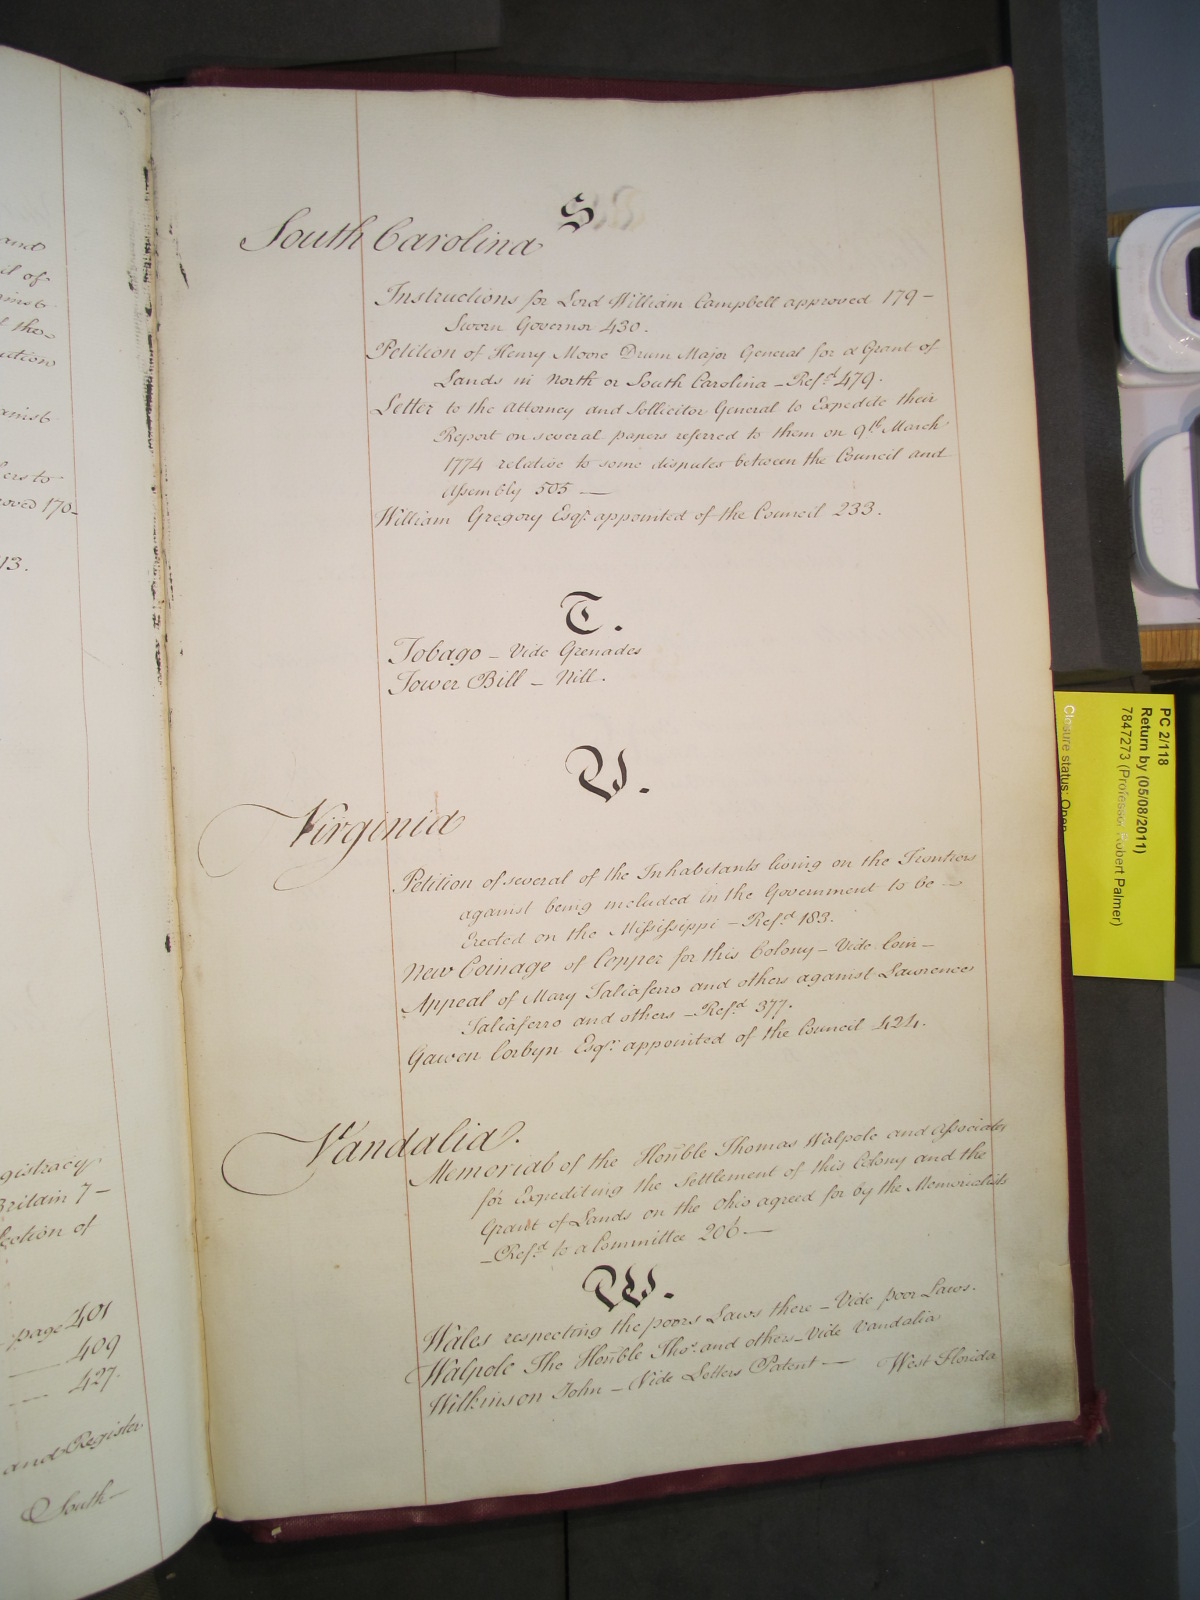 and
il of
inst
the
ution
ainst
ers to
oved 170-
13.
gistracy
Britain 7-
ection of
page 401
409
427.
and Register
South-
S
South Carolina
Instructions for Lord William Campbell approved 179-
Sworn Governor 430.
Petition of Henry Moore Drum Major General for a Grant of
Lands in North or South Carolina - Ref.d 479.
Letter to the Attorney and Sollicitor General to Expedite their
Report on several papers referred to them on 9th March
1774 relative to some disputes between the Council and
Assembly 505 —
William Gregory Esqr. appointed of the Council 233.
T.
Tobago - Vide Grenades
Tower Bill - Nill.
V.
Virginia
Petition of several of the Inhabitants living on the Frontiers
against being included in the Government to be —
Erected on the Missisippi - Ref.d 183.
New Coinage of Copper for this Colony - Vide Coin -
Appeal of Mary Taliaferro and others against Lawrence
Taliaferro and others - Ref.d 377.
Gawen Corbyn Esqr. appointed of the Council 424.
Vandalia.
Memorial of the Honble Thomas Walpole and Associates
for Expediting the Settlement of this Colony and the
Grant of Lands on the Ohio agreed for by the Memorialists
- Ref.d to a Committee 206 —
W.
Wales respecting the poors Laws there - Vide poor Laws.
Walpole The Honble Thos. and others - Vide Vandalia
Wilkinson John - Vide Letters Patent — West Florida
PC 2/118
Return by (05/08/2011)
7847273 (Professor Robert Palmer)
Closure status: Open